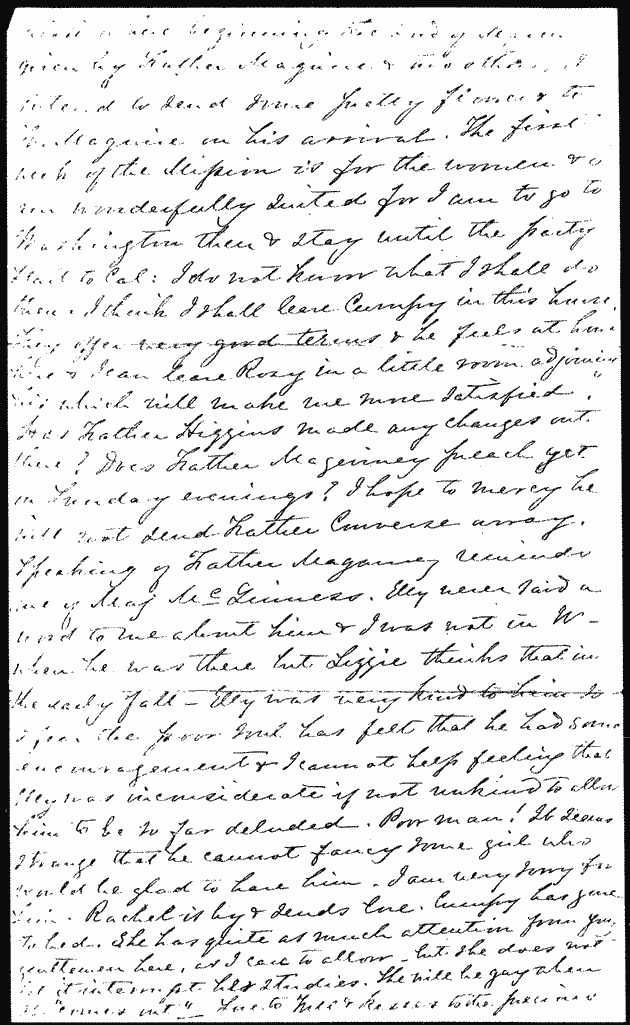 beginning the 2nd of March
given by Father Maguire & two others. I
intend to send some pretty flowers to
Fr Maguire on his arrival. The first
week of the Mission is for the women & a
am wonderfully suited for I am to go to
Washington then & stay until the party
start to Cal: I do not know what I shall do
then. I think I shall leave Cumpy in this house.
They offer very good terms & he feels at home
here & I can leave Rosy in a little room adjoining
his which will make me more satisfied.
Has Father Higgins made any changes out
there? Does Father Maginney preach yet
on Sunday evenings? I hope to mercy he
will not send Father Converse away.
Speaking of Father Maganney reminds
me of Maj McGinness. Elly never said a
word to me about him & I was not in W-
when he was there but Lizzie thinks that in
the early fall - Elly was very kind to him so
I fear the poor soul has felt that he had some
encouragement & I cannot help feeling that
Elly was inconsiderate if not unkind to allow
him to be so far deluded. Poor man! It seems
strange that he cannot fancy some girl who
would be glad to have him. I am very sorry for
him. Rachel is by & sends love. Cumpy has gone
to bed. She has quite as much attention from
gentlemen here, as I care to allow - but she does not
let it interrupt her studies. She will be gay when
"comes out" - Love to & kisses to the precious